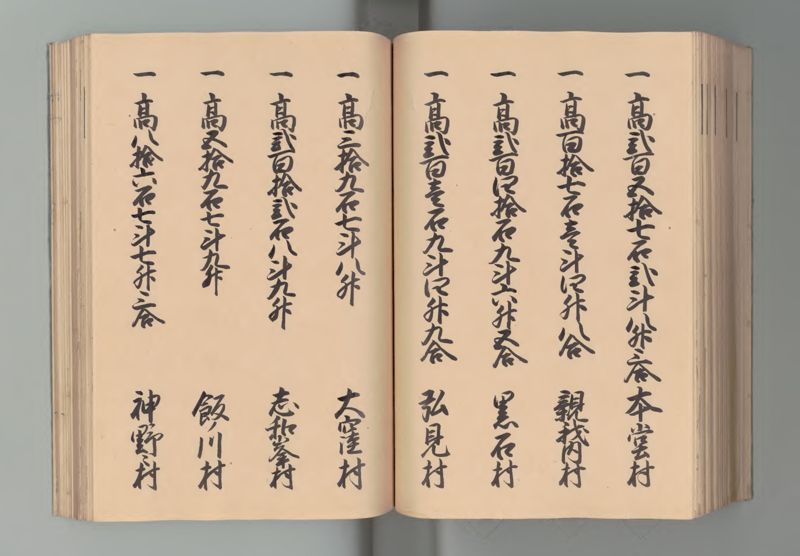 一 高弐百五拾七石弐斗八升三合 本堂村
一 高百拾七石壱斗四升八合 親我内村
一 高弐百四拾石九斗六升五合 黒石村
一 高弐百壱石九斗四升九合 弘見村
一 高三拾九石七斗八升 大窪村
一 高弐百拾弐石八斗九升 志和峯村
一 高五拾九石七斗九升 飯ノ川村
一 高八拾六石七斗七升三合 神野々村